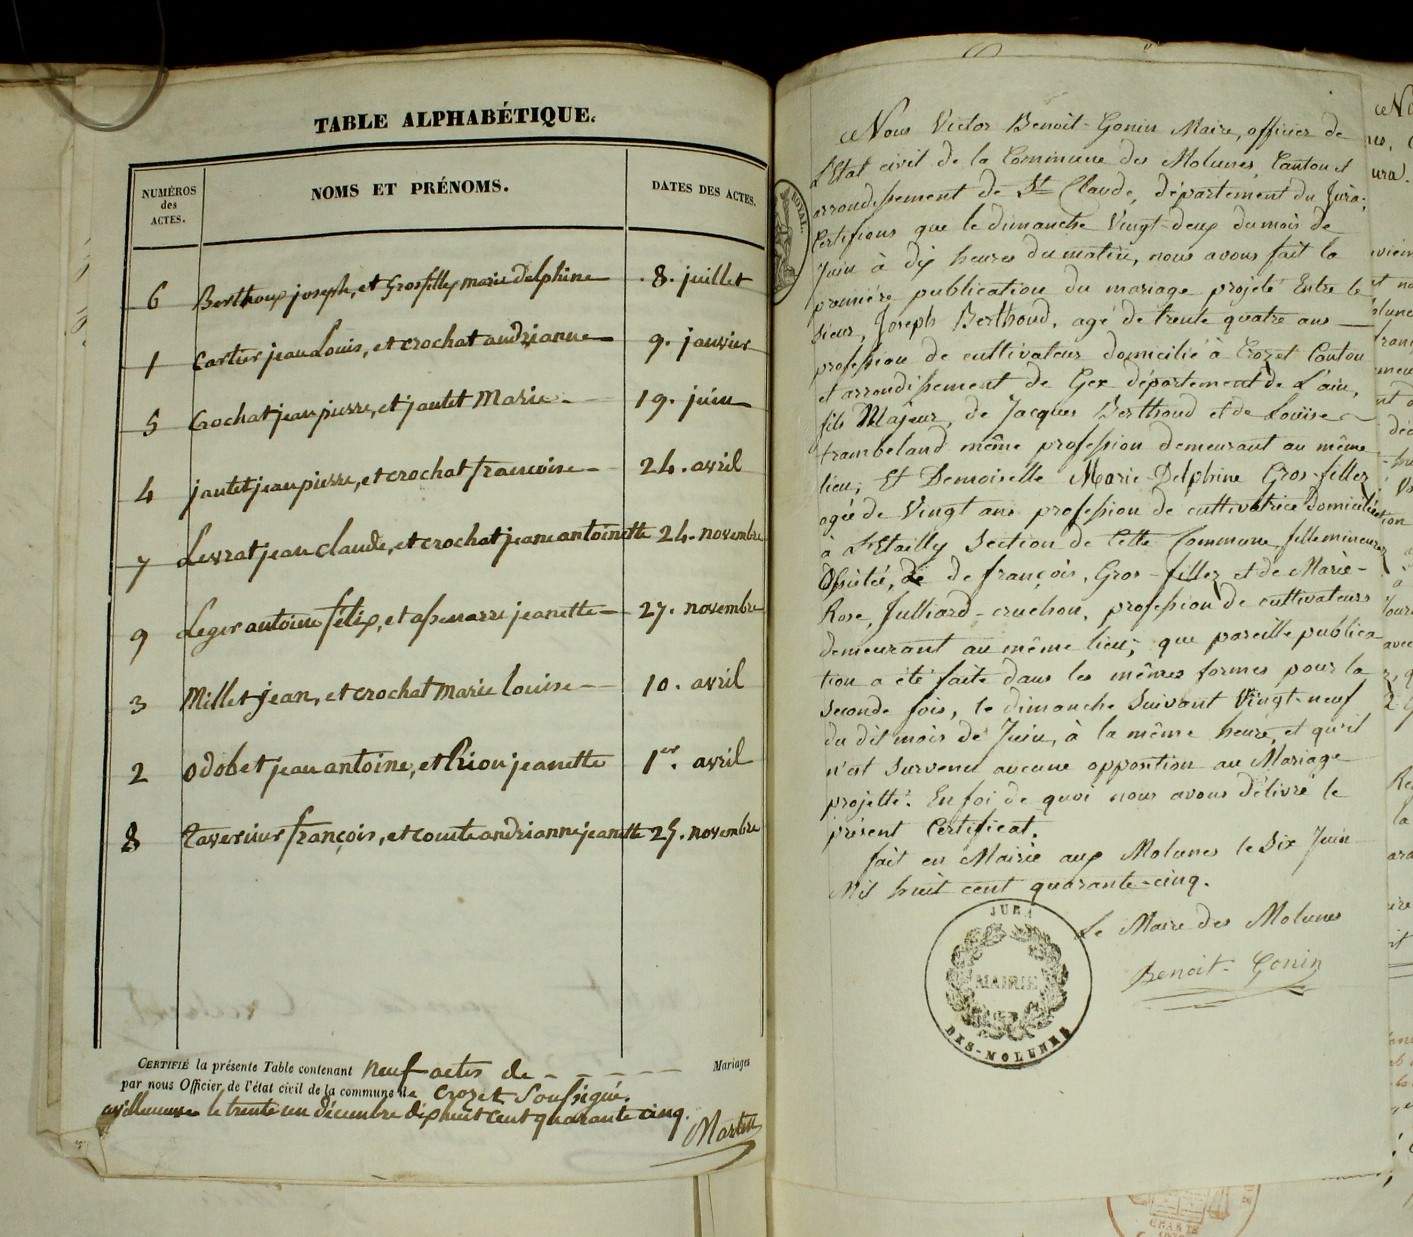 TABLE ALPHABÉTIQUE.
NUMÉROS des ACTES.
NOMS ET PRÉNOMS.
DATES DES ACTES.
6 Berthoux joseph, et Grosfillex marie delphine 8. juillet
1 Cartier jean Louis, et crochat andrianne 9. janvier
5 Crochat jean pierre, et jantet Marie 19. juin
4 jantet jean pierre, et crochat francoise 24. avril
7 Levrat jean claude, et crochat jeane antoinette 24. novembre
9 Leger antoine félix, et jeanette 27. novembre
3 Millet jean, et crochat marie louise 10. avril
2 odobet jean antoine, et jeanette 1er. avril
8 Tavernier françois, et comte andrianne jeanette 25. novembre
CERTIFIÉ la présente Table contenant neuf actes de Mariages
par nous Officier de l'état civil de la commune de Crozet Soussigné.
le trente un décembre dix huit cent quarante cinq.
ROYAL.
Nous Victor Benoit-Gonin Maire, officier de
L'Etat civil de la Commune des Molunes, Canton et
arrondissement de St Claude, département du Jura;
Certifions que le dimanche Vingt-deux du mois de
Juin à dix heures du matin, nous avons fait la
première publication du mariage projeté Entre le
sieur, Joseph Berthoud, agé de trente quatre ans
profession de cultivateur domicilié à Crozet Canton
et arrondissement de Gex département de L'ain,
fils Majeur, de Jacques Berthoud et de Louise
trambeland même profession demeurant au même
lieu; Et Demoiselle Marie-Delphine Gros-fillex
agée de Vingt ans profession de cultivatrice Domiciliée
à L'Etailly Section de Cette Commune, fille mineure
de françois, Gros-fillex et de Marie-
Rose, Julliard-cruchon, profession de cultivateurs
demeurant au même lieu; que pareille publica
tion a été faite dans les mêmes formes pour la
seconde fois, le dimanche suivant Vingt-neuf
du dit mois de Juin, à la même heure, et qu'il
n'est survenu aucune opposition au Mariage
projetté. En foi de quoi nous avons délivré le
présent Certificat.
fait en Mairie aux Molunes le Six Juin
Mil huit cent quarante-cinq.
Le Maire des Molunes
Benoit-Gonin
JURA
MAIRIE
DES-MOLUNES